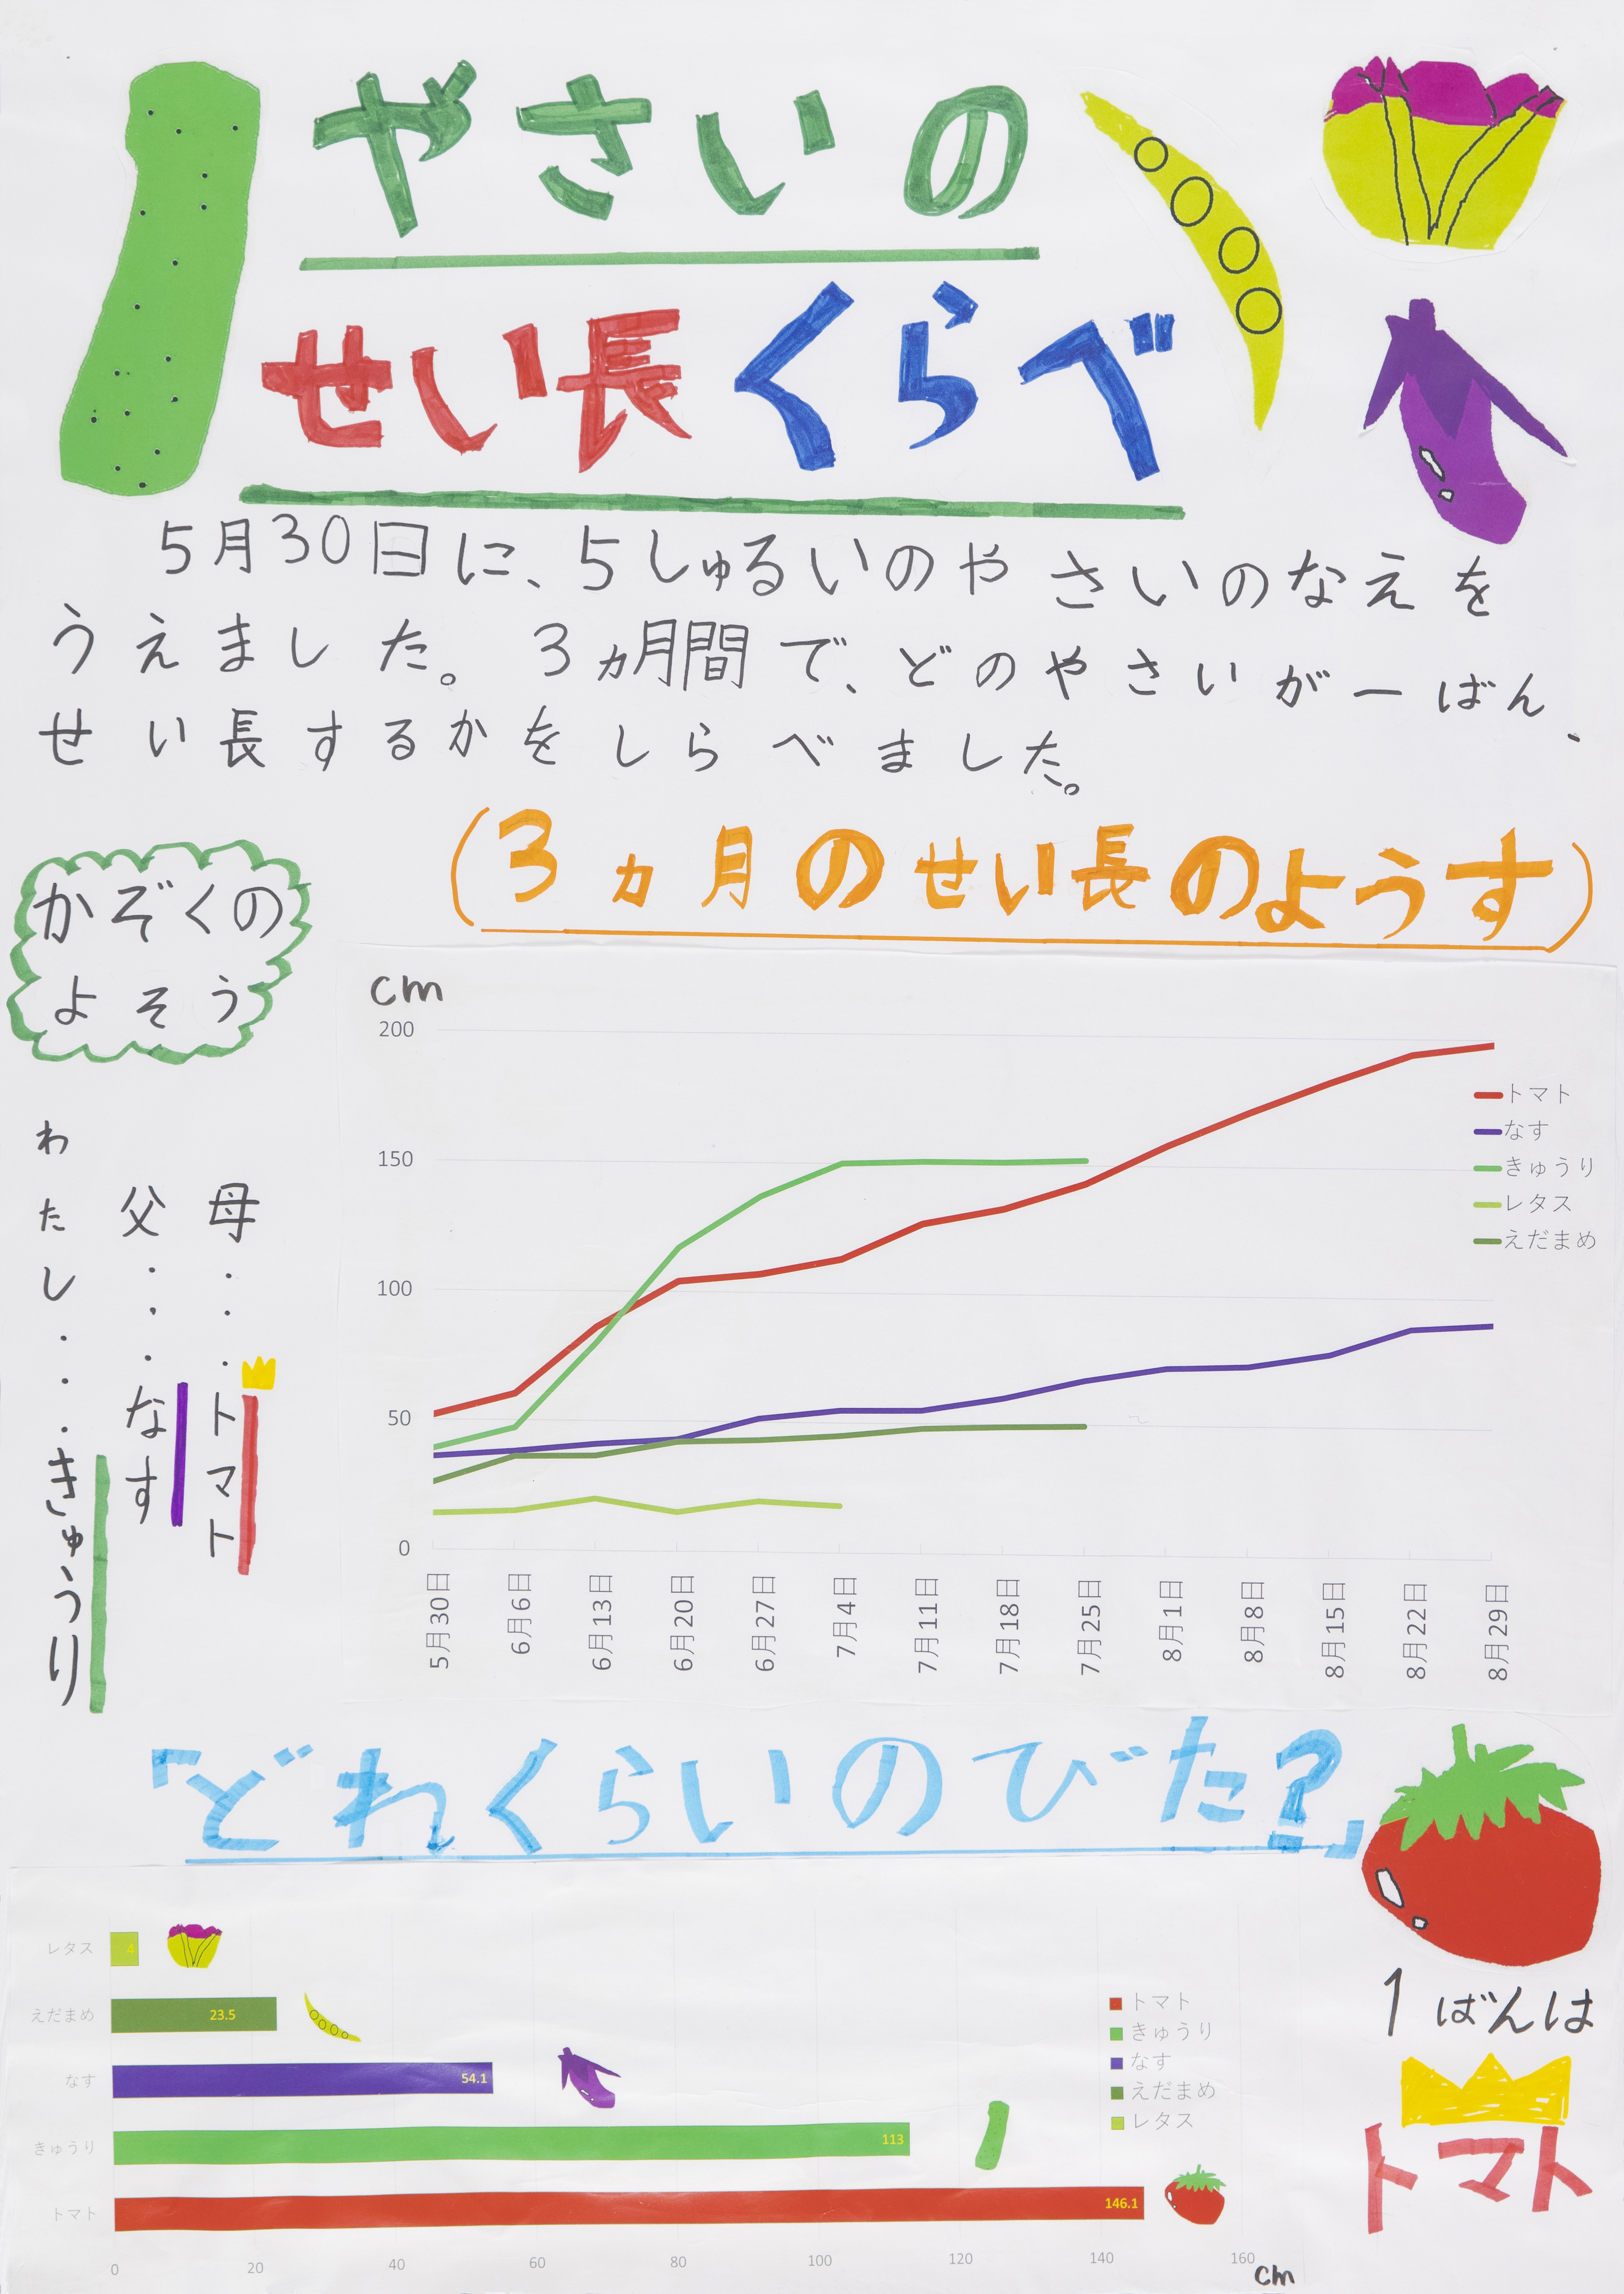 やさいの
せい長くらべ
5月30日に、5しゅるいのやさいのなえを
うえました。3ヵ月間で、どのやさいが一ばん、
せい長するかをしらべました。
(3ヵ月のせい長のようす)
かぞくの
よそう
母・・・トマト
父・・・なす
わたし・・・きゅうり
cm
200
150
100
50
0
トマト
なす
きゅうり
レタス
えだまめ
5月30日
6月6日
6月13日
6月20日
6月27日
7月4日
7月11日
7月18日
7月25日
8月1日
8月8日
8月15日
8月22日
8月29日
「どれくらいのびた?」
レタス 4
えだまめ 23.5
なす 54.1
きゅうり 113
トマト 146.1
0 20 40 60 80 100 120 140 160 cm
トマト
きゅうり
なす
えだまめ
レタス
1ばんは
トマト